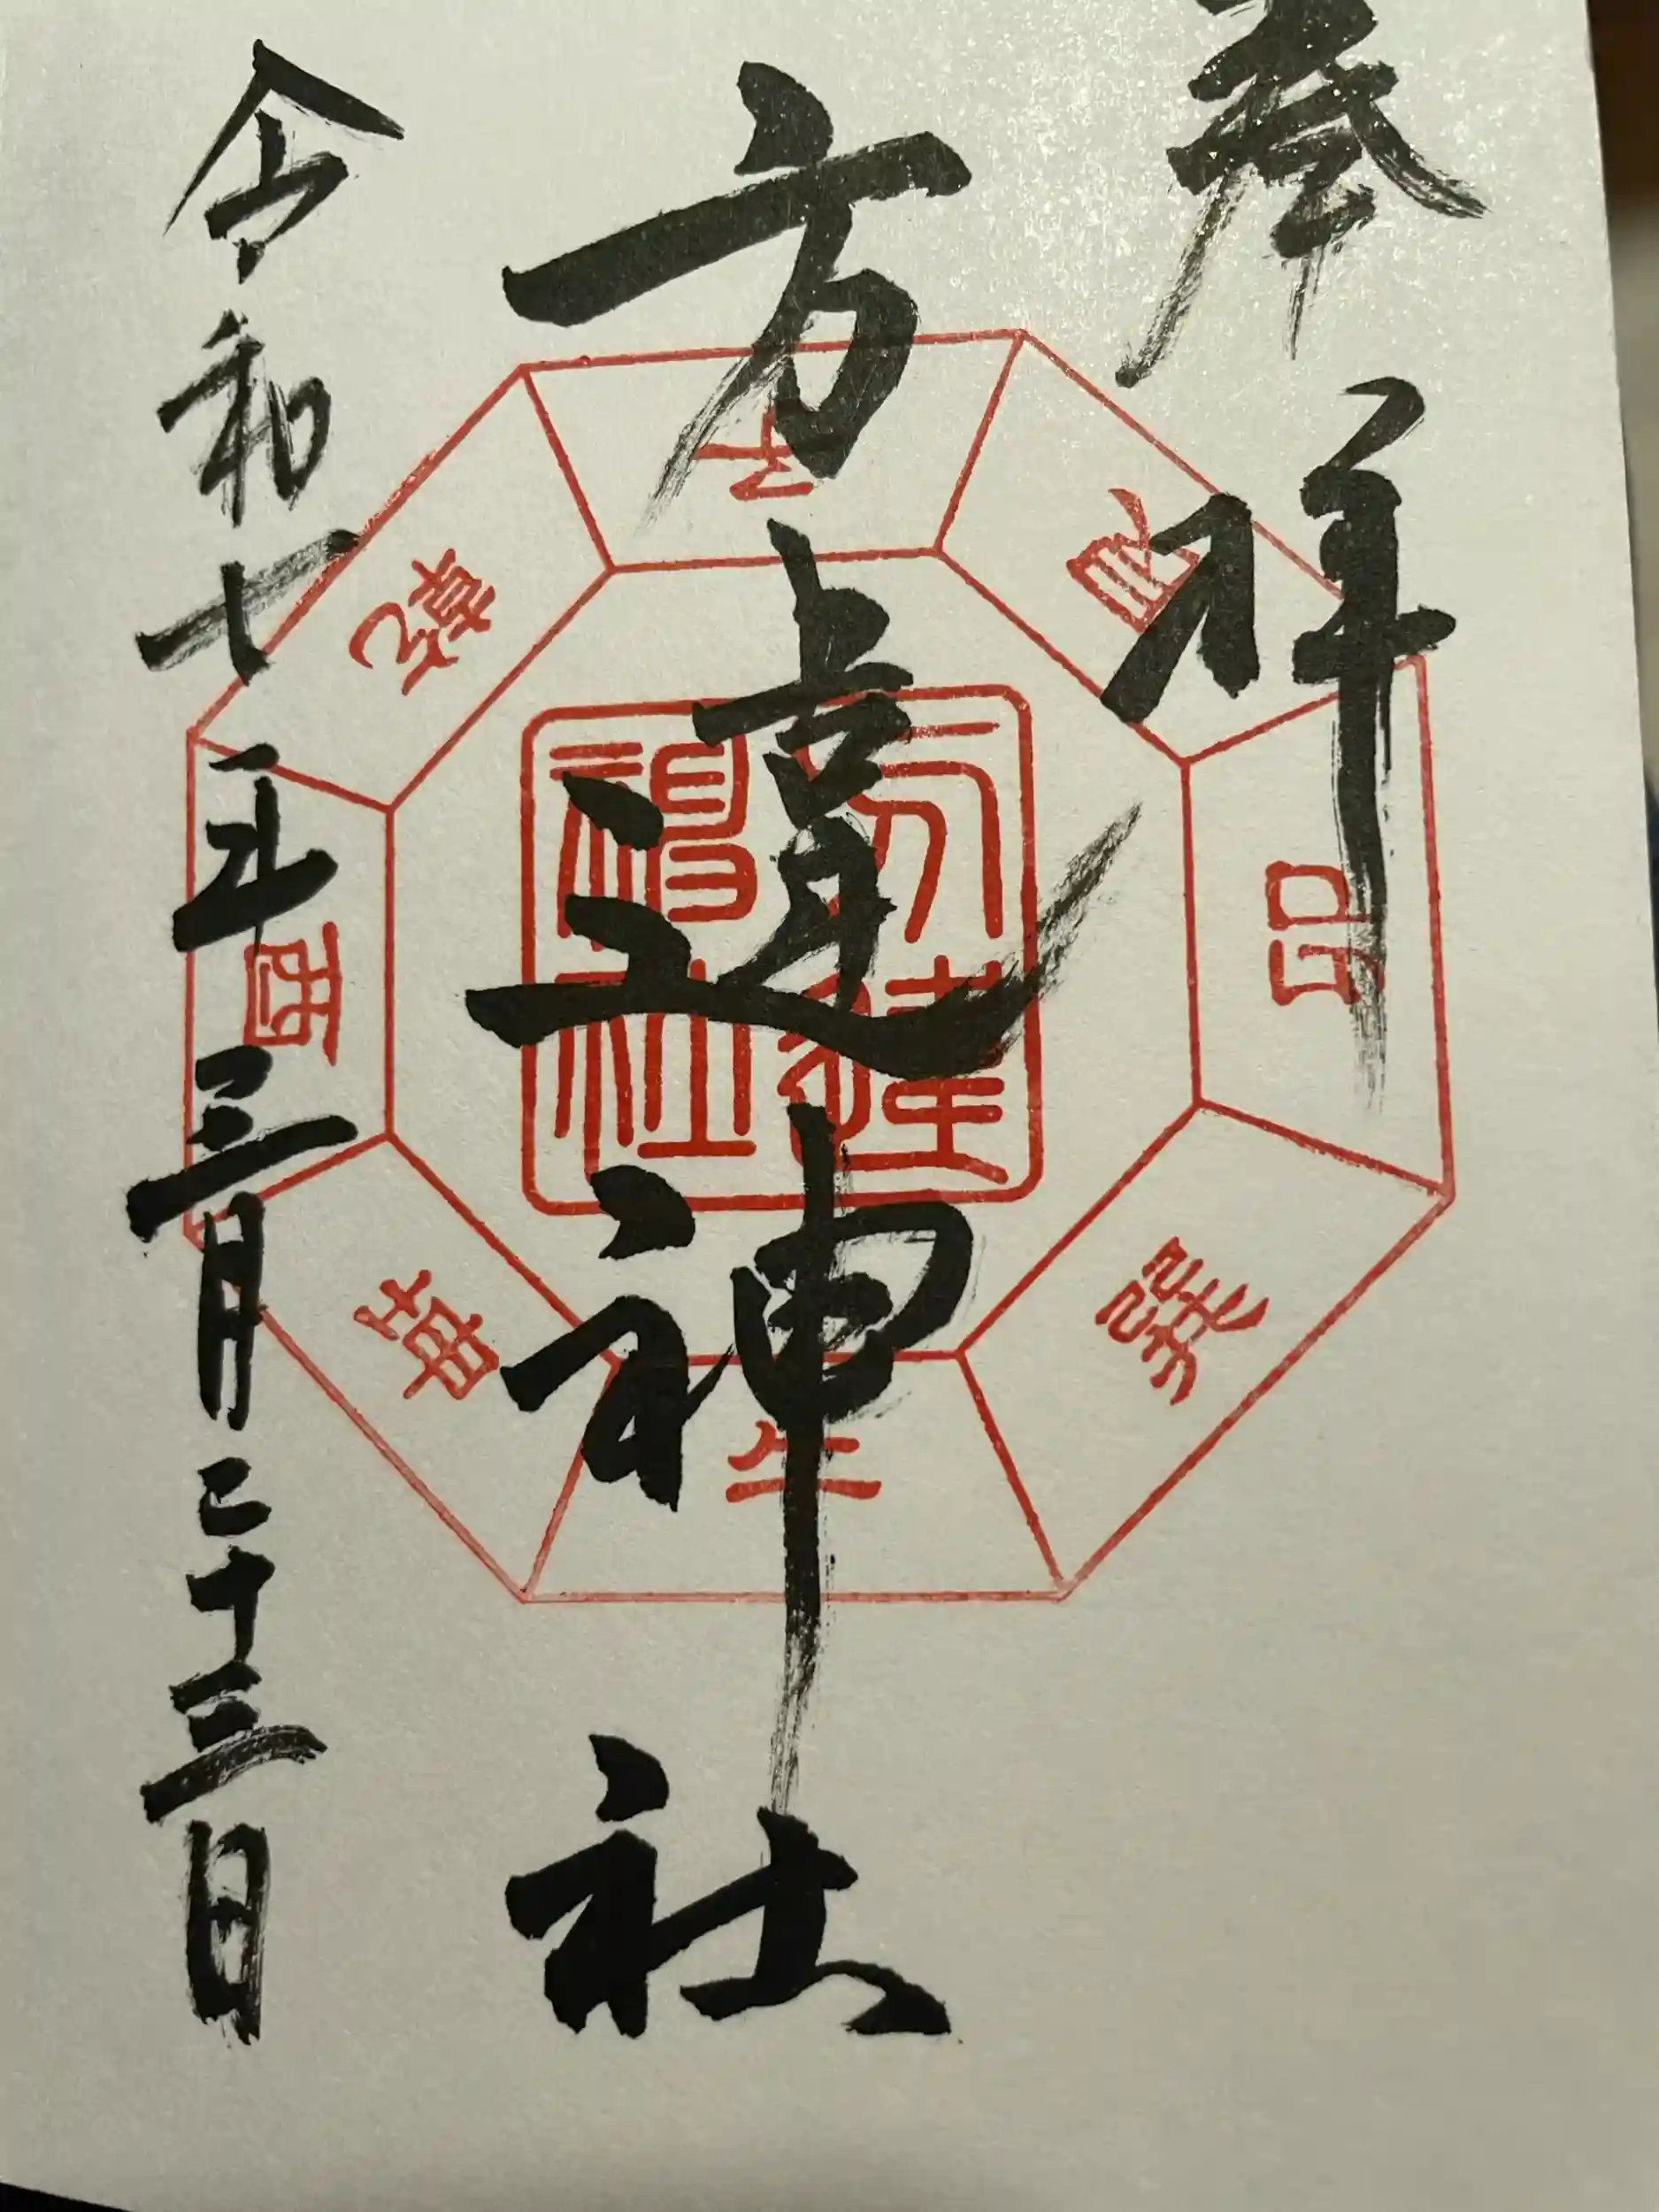 奉拝
方違神社
令和七年三月二十三日
方違
神社
艮
巽
坤
乾